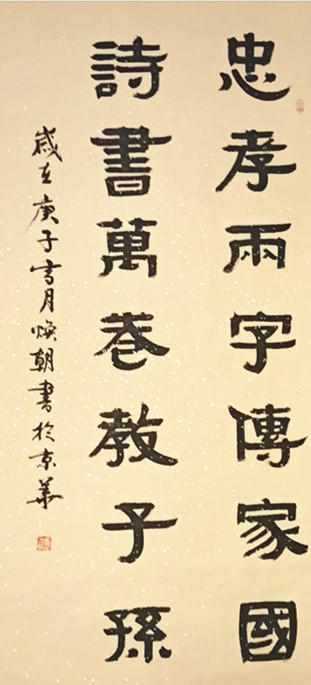 忠孝兩字傳家國
詩書萬卷教子孫
歲在庚子雪月煥朝書於京華